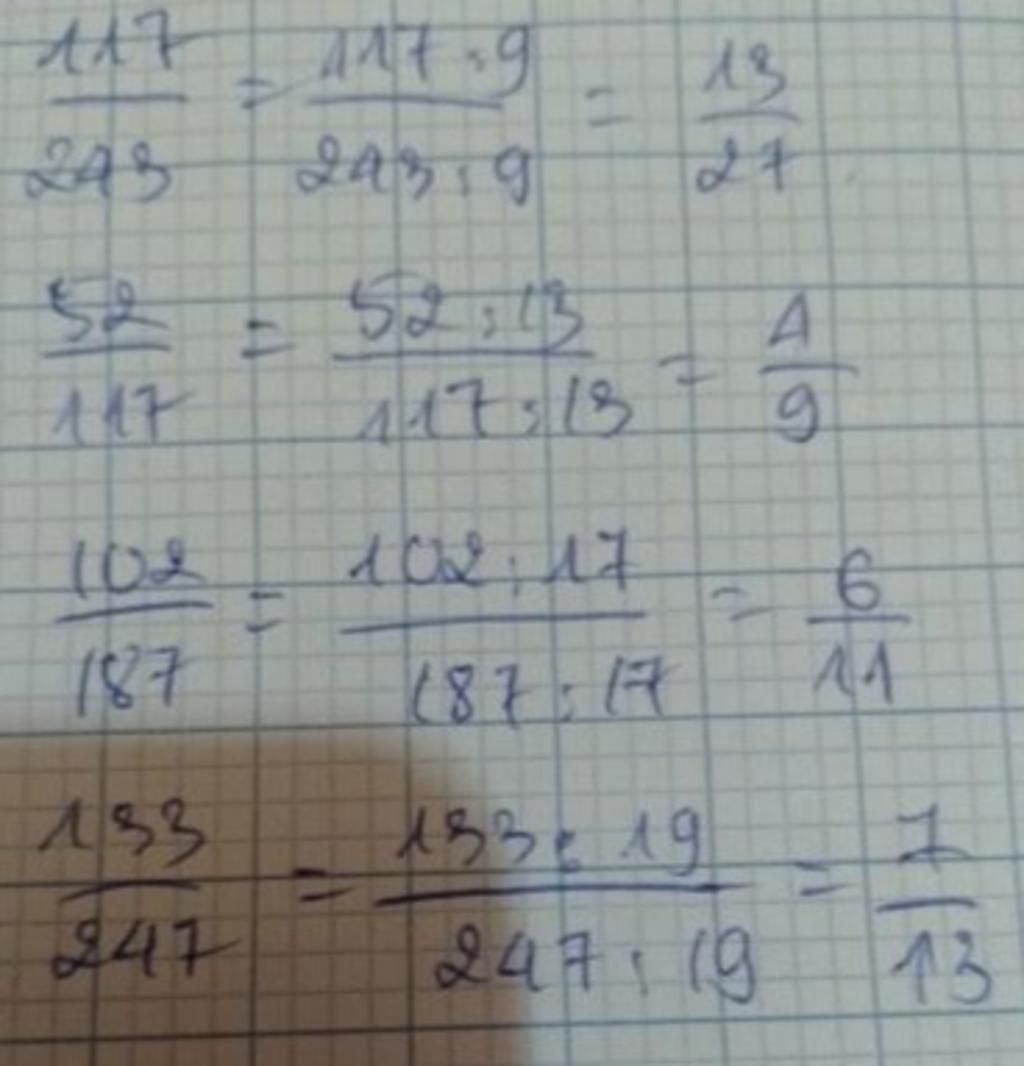 117/243 = 117:9/243:9 = 13/27
52/117 = 52:13/117:13 = 4/9
102/187 = 102:17/187:17 = 6/11
133/247 = 133:19/247:19 = 7/13